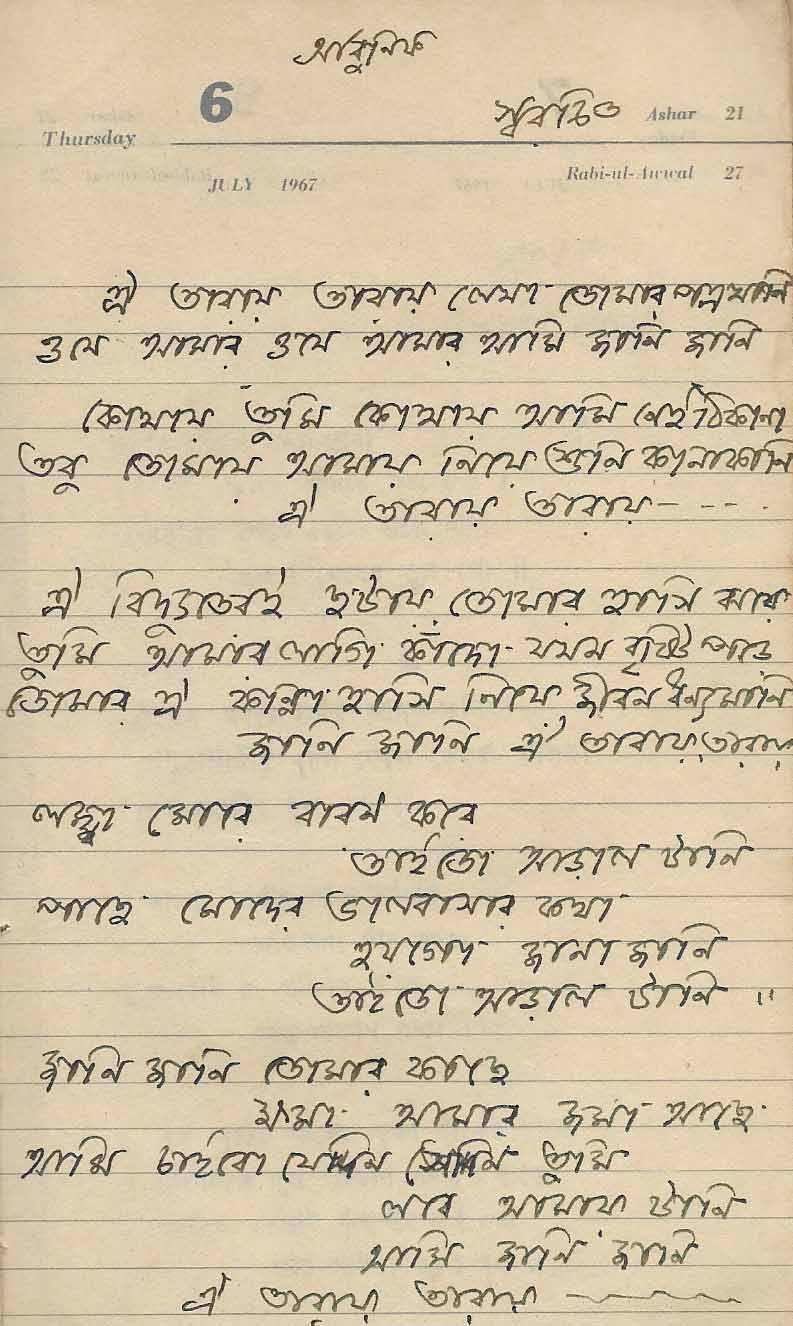 আধুনিক
6
স্বরচিত Ashar 21
Thursday
JULY 1967 Rabi-ul-Awwal 27
ঐ তারায় তারায় লেখা তোমার পত্রখানি
ওযে আমার ওযে আমার আমি জানি জানি
কোথায় তুমি কোথায় আমি নেই ঠিকানা
তবু তোমায় আমায় নিয়ে শুনি কানাকানি
ঐ তারায় তারায় - - - -
ঐ বিদ্যুতেরই ছটায় তোমার হাসি ঝরে
তুমি আমার লাগি কাঁদো যখন বৃষ্টি পড়ে
তোমার ঐ কান্না হাসি নিয়ে জীবন ধন্য মানি
জানি জানি ঐ তারায় তারায়
লজ্জা মোরে বারণ করে
তাইতো আড়াল টানি
পাছে মোদের ভালবাসার কথা
জানা জানি
তাইতো আড়াল টানি ॥
জানি জানি তোমার কাছে
ক্ষমা আমার জমা আছে
আমি চাইবো যেদিন সেদিন তুমি
লবে আমায় টানি
আমি জানি জানি
ঐ তারায় তারায়